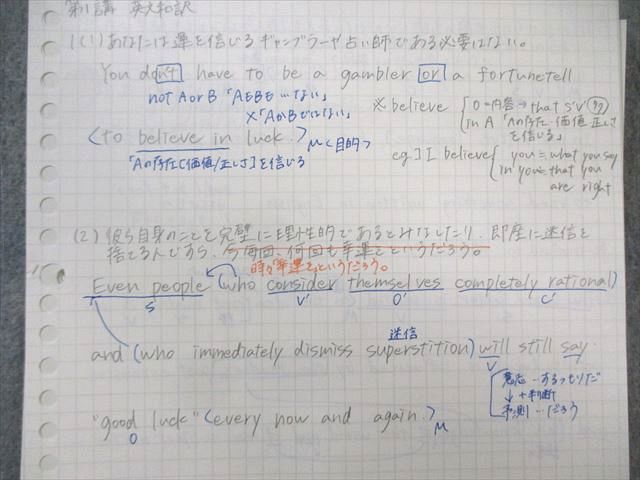 第1講 英文和訳
1 (1) あなたは運を信じるギャンブラーや占い師である必要はない。
You don't have to be a gambler or a fortunetell
not A or B 「AもBも…ない」
×「AかBではない」
(to believe in luck.) M<目的>
「Aの存在[価値/正しさ]を信じる
※ believe O=内容→that s'v'
in A 「Aの存在・価値・正しさを信じる」
eg] I believe you = what you say
in you = that you are right
(2) 彼ら自身のことを完璧に理性的であるとみなしたり、即座に迷信を
捨てる人ですら、今毎回、何回も幸運をというだろう。
時々"幸運を"というだろう。
Even people (who consider themselves completely rational)
S V' O' C'
迷信
and (who immediately dismiss superstition) will still say
V
意志…するつもりだ
↓+判断
予測…だろう
"good luck" (every now and again.) M
O